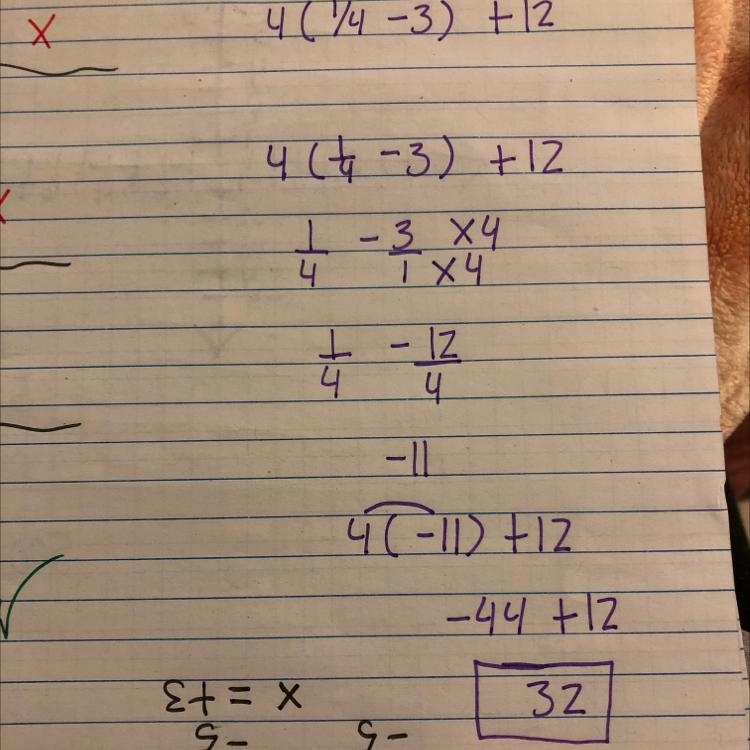 X
4(1/4 -3) +12
4(1/4 -3) +12
1/4 - 3/1 x4 x4
1/4 - 12/4
-11
4(-11) +12
-44 +12
32
x = +3
-5 -5